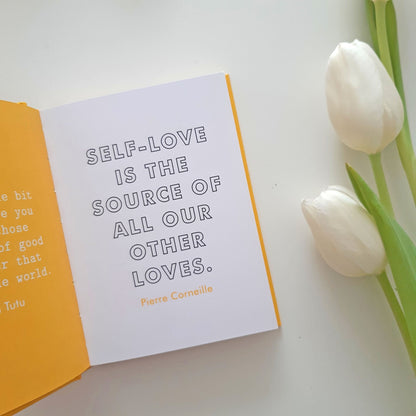 e bit
e you
hose
of good
r that
e world.
Tutu
SELF-LOVE
IS THE
SOURCE OF
ALL OUR
OTHER
LOVES.
Pierre Corneille